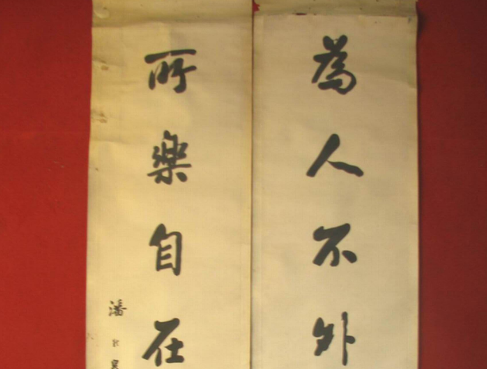 為人不外
所樂自在
潘